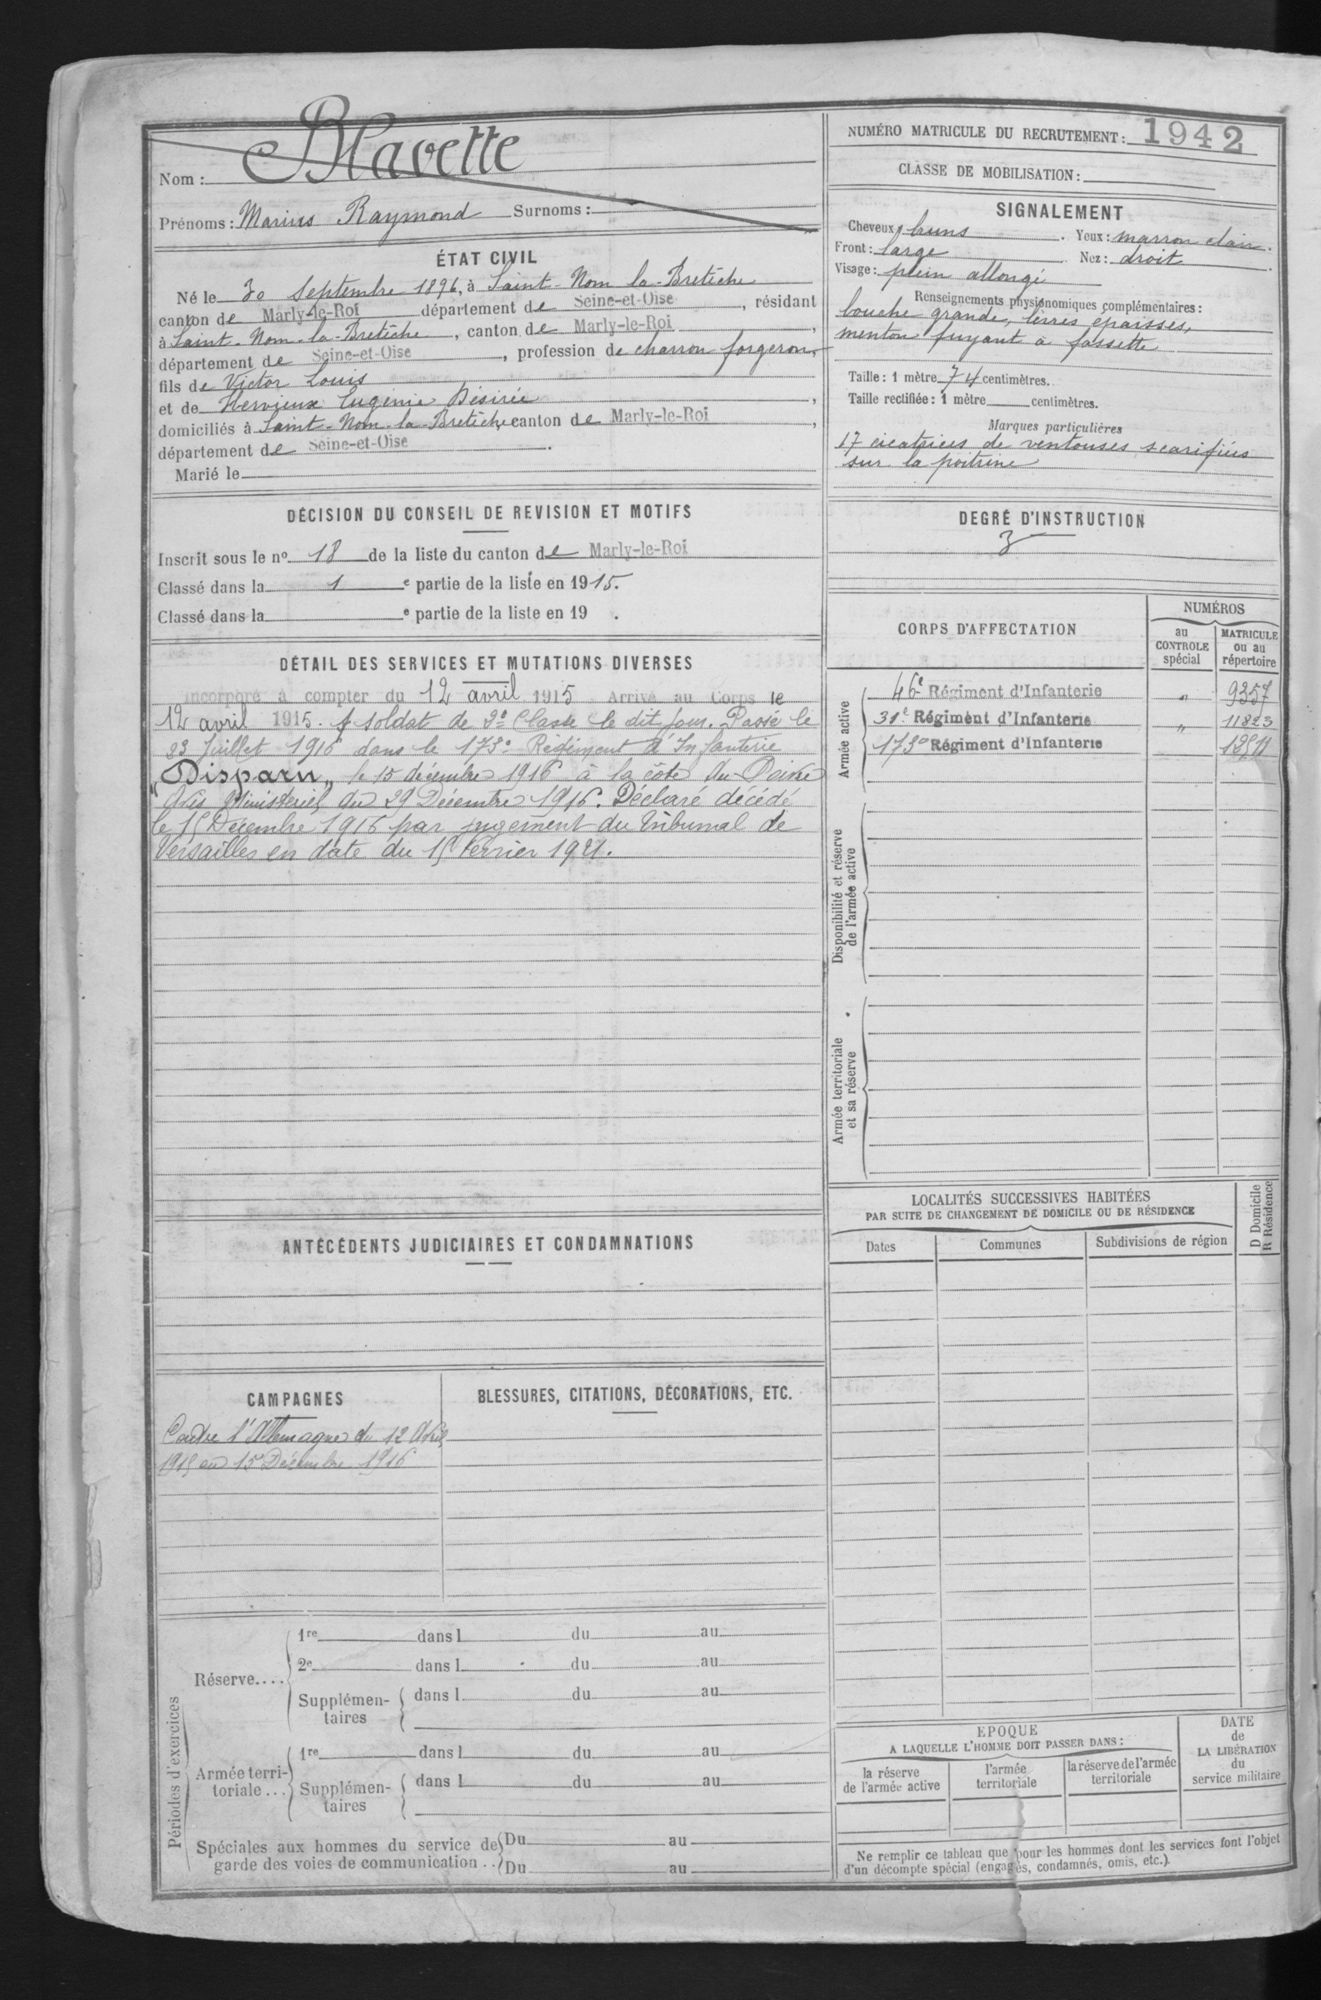 Nom : Blavette
Prénoms : Marius Raymond Surnoms :
ÉTAT CIVIL
Né le 30 Septembre 1896, à Saint-Nom la-Bretèche
canton de Marly-le-Roi département de Seine-et-Oise, résidant
à Saint-Nom-la-Bretèche, canton de Marly-le-Roi,
département de Seine-et-Oise, profession de charron forgeron,
fils de Victor Louis
et de Hervieux Eugénie Désirée,
domiciliés à Saint-Nom-la-Bretèche canton de Marly-le-Roi,
département de Seine-et-Oise.
Marié le
DÉCISION DU CONSEIL DE REVISION ET MOTIFS
Inscrit sous le no 18 de la liste du canton de Marly-le-Roi
Classé dans la 1 e partie de la liste en 1915.
Classé dans la e partie de la liste en 19 .
DÉTAIL DES SERVICES ET MUTATIONS DIVERSES
Incorporé à compter du 12 avril 1915 Arrivé au Corps le
12 avril 1915. soldat de 2e Classe le dit jour. Passé le
23 Juillet 1916 dans le 173e Régiment d'Infanterie
"Disparu" le 15 décembre 1916 à la côte du Poivre
Avis Ministériel du 29 Décembre 1916. Déclaré décédé
le 15 Décembre 1916 par jugement du tribunal de
Versailles en date du 15 Février 1921.
ANTÉCÉDENTS JUDICIAIRES ET CONDAMNATIONS
CAMPAGNES
Contre l'Allemagne du 12 Avril
1915 au 15 Décembre 1916
BLESSURES, CITATIONS, DÉCORATIONS, ETC.
Périodes d'exercices
Réserve....
1re dans l du au
2e dans l du au
Supplémentaires dans l du au
Armée territoriale...
1re dans l du au
Supplémentaires dans l du au
Spéciales aux hommes du service de Du au
garde des voies de communication .. Du au
NUMÉRO MATRICULE DU RECRUTEMENT : 1942
CLASSE DE MOBILISATION :
SIGNALEMENT
Cheveux bruns . Yeux : marron clair.
Front : large Nez : droit
Visage : plein allongé
Renseignements physionomiques complémentaires :
bouche grande, lèvres épaisses,
menton fuyant à fossette
Taille : 1 mètre 74 centimètres.
Taille rectifiée : 1 mètre centimètres.
Marques particulières
17 cicatrices de ventouses scarifiées
sur la poitrine
DEGRÉ D'INSTRUCTION
3
CORPS D'AFFECTATION
NUMÉROS
au CONTROLE spécial
MATRICULE ou au répertoire
Armée active
46e Régiment d'Infanterie " 9357
31e Régiment d'Infanterie " 11823
173e Régiment d'Infanterie
Disponibilité et réserve
de l'armée active
Armée territoriale
et sa réserve
LOCALITÉS SUCCESSIVES HABITÉES
PAR SUITE DE CHANGEMENT DE DOMICILE OU DE RÉSIDENCE
Dates Communes Subdivisions de région
D Domicile
R Résidence
EPOQUE
A LAQUELLE L'HOMME DOIT PASSER DANS :
la réserve
de l'armée active
l'armée
territoriale
la réserve de l'armée
territoriale
DATE
de
LA LIBÉRATION
du
service militaire
Ne remplir ce tableau que pour les hommes dont les services font l'objet
d'un décompte spécial (engagés, condamnés, omis, etc.).